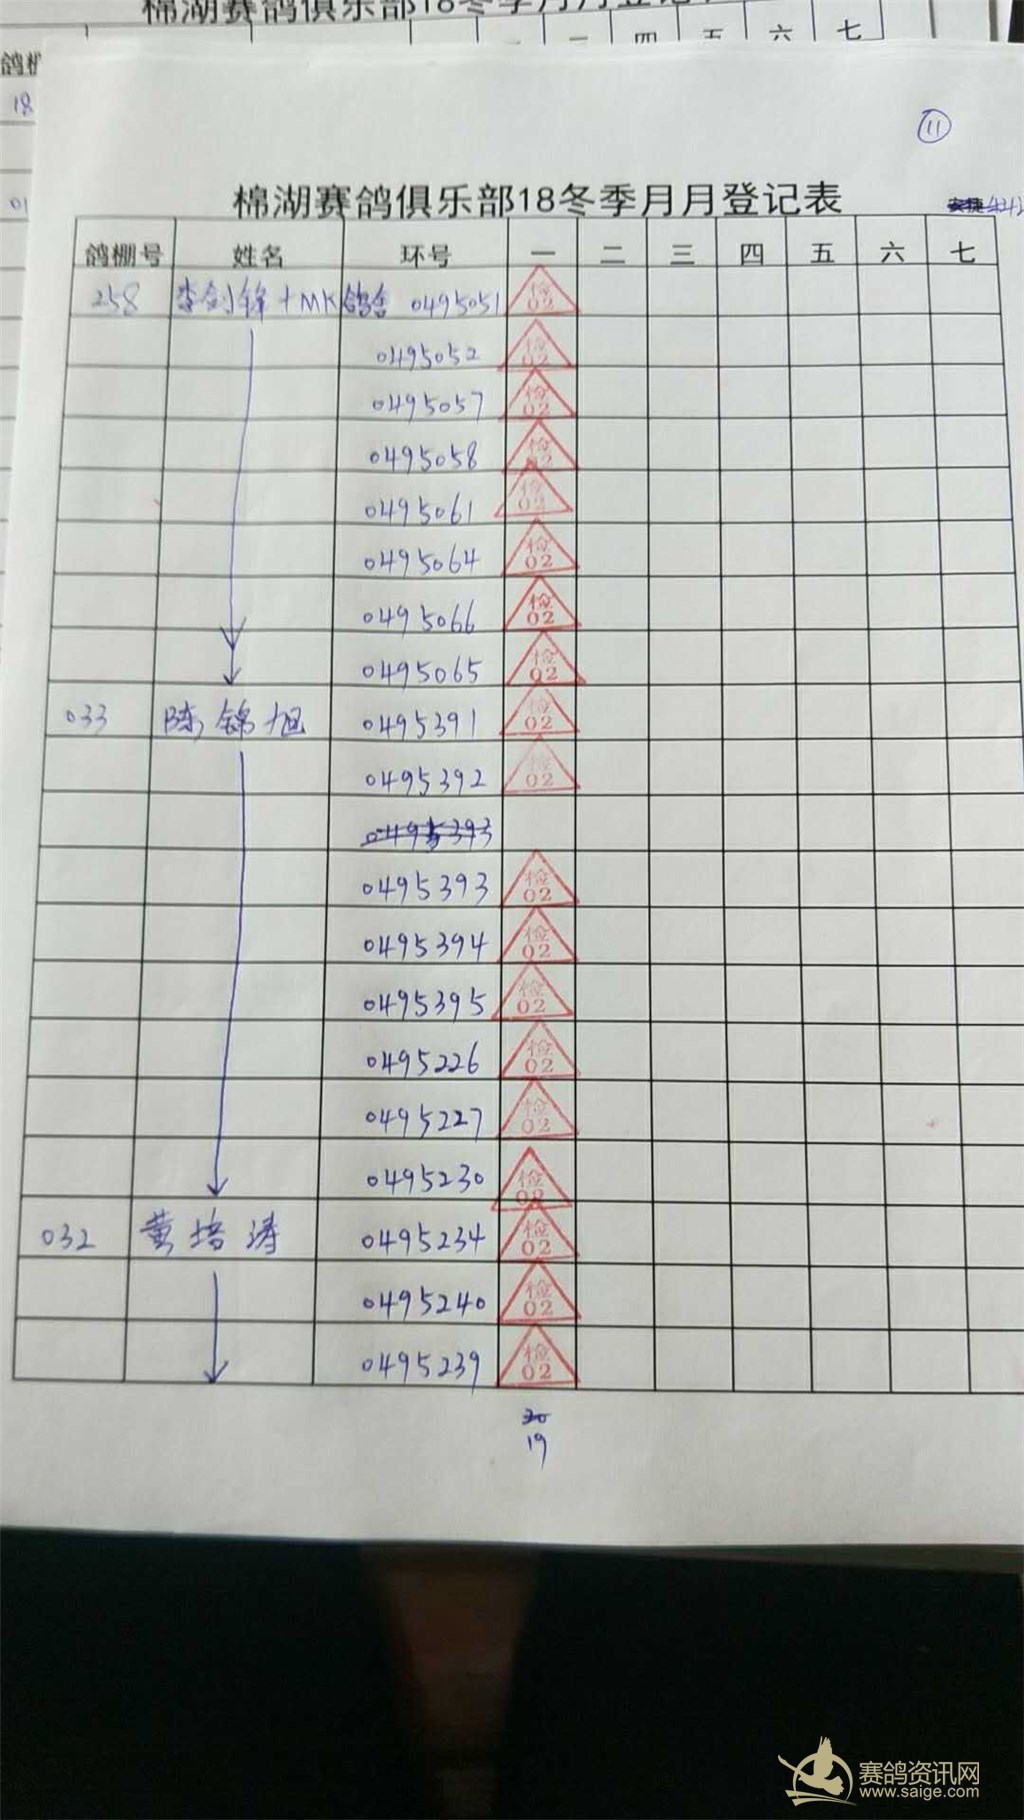 棉湖赛鸽俱乐部18冬季月月登记表
四 五 六 七
18
01
11
棉湖赛鸽俱乐部18冬季月月登记表
鸽棚号 姓名 环号 一 二 三 四 五 六 七
258 李剑锋+MK鸽舍 0495051 检02
0495052 检02
0495057 检02
0495058 检02
0495061 检02
0495064 检02
0495066 检02
0495065 检02
033 陈锦旭 0495391 检02
0495392 检02
0495393
0495393 检02
0495394 检02
0495395 检02
0495226 检02
0495227 检02
0495230 检02
032 黄培涛 0495234 检02
0495240 检02
0495239 检02
20
19
赛鸽资讯网
www.saige.com